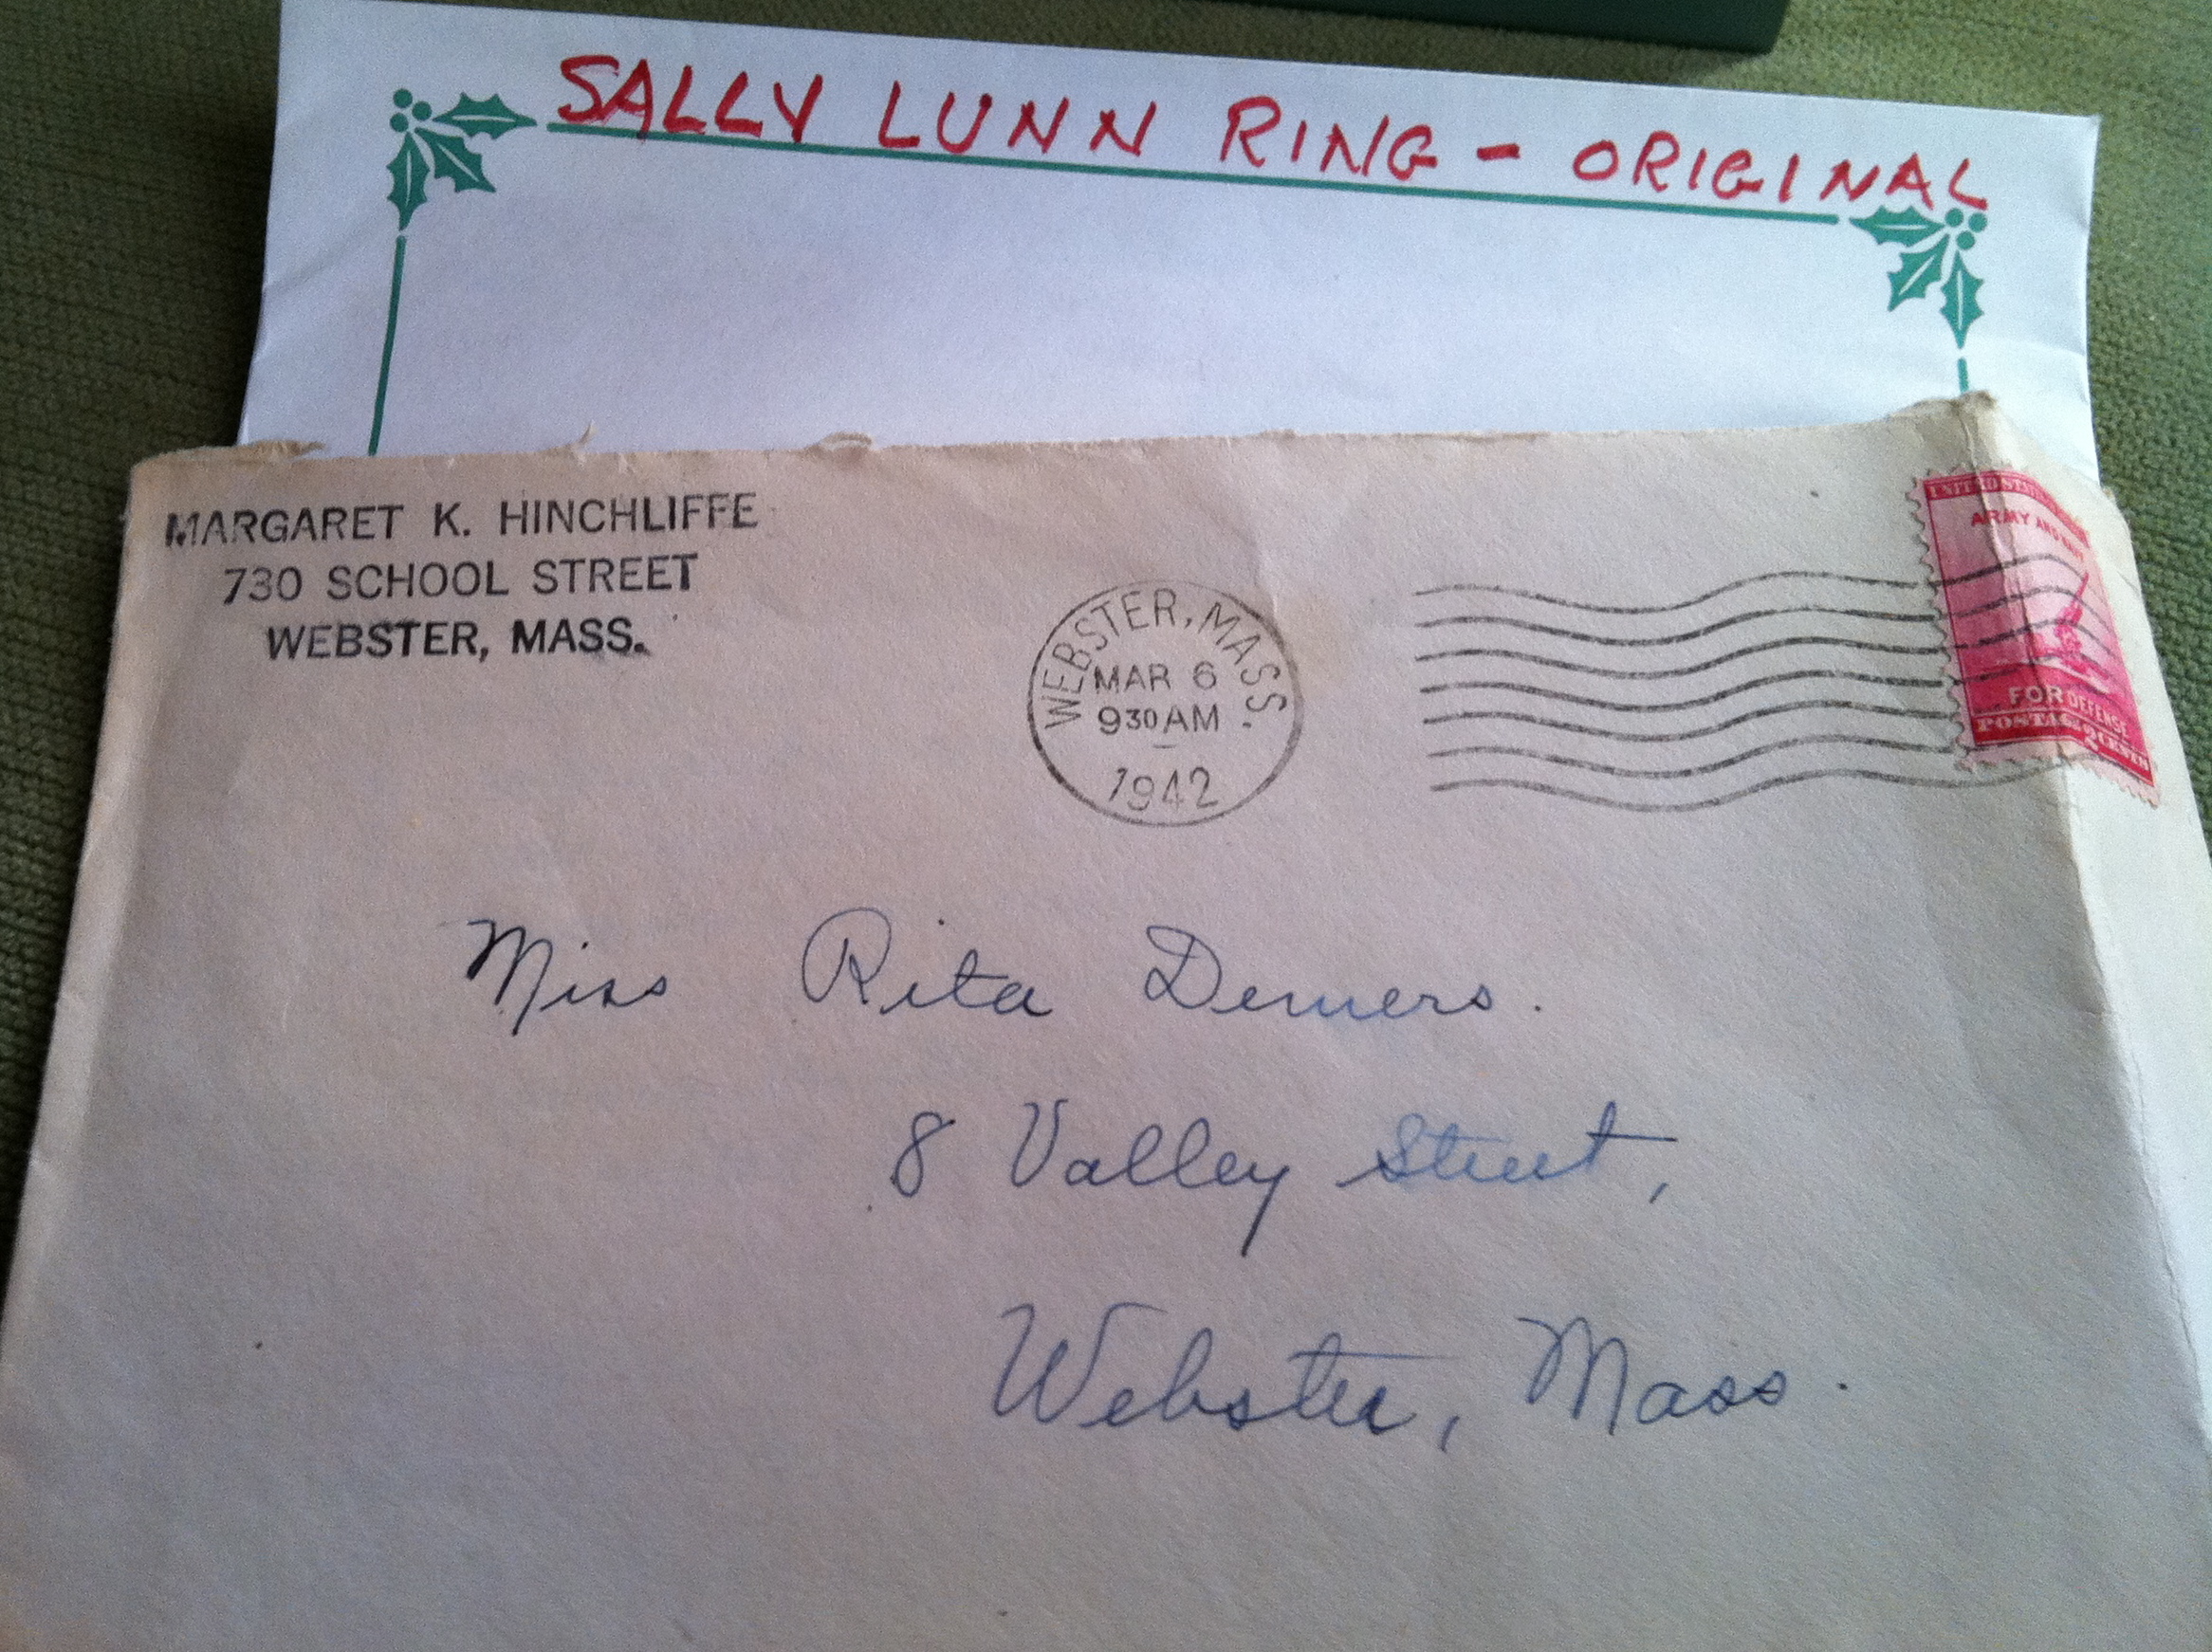 SALLY LUNN RING - ORIGINAL
MARGARET K. HINCHLIFFE
730 SCHOOL STREET
WEBSTER, MASS.
WEBSTER, MASS.
MAR 6
930AM
1942
UNITED STATES
ARMY AND NAVY
FOR DEFENSE
POSTAGE 2 CENTS
Miss Rita Demers.
8 Valley Street,
Webster, Mass.